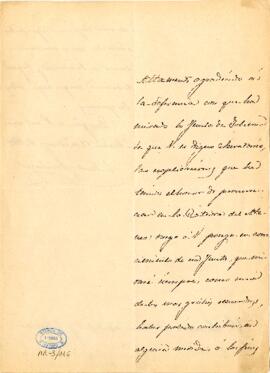 Altamente agradecido á
la deferencia con que ha
mirado la Junta de Gobierno
de que V. es digno Secretario,
las explicaciones que he
tenido el honor de pronun-
ciar en la Cátedra del Ate-
neo: ruego á V. ponga en cono-
cimiento de esa Junta que mi-
raré siempre, como uno
de los mas gratos recuerdos,
haber podido contribuir en
alguna medida á los fines
AR-3/116